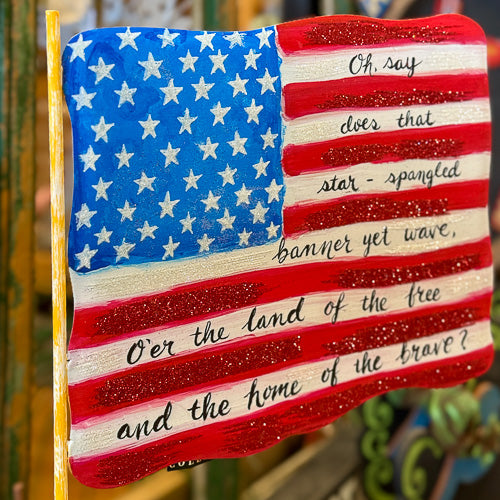 Oh, say
does that
star - spangled
banner yet wave,
O'er the land of the free
and the home of the brave?